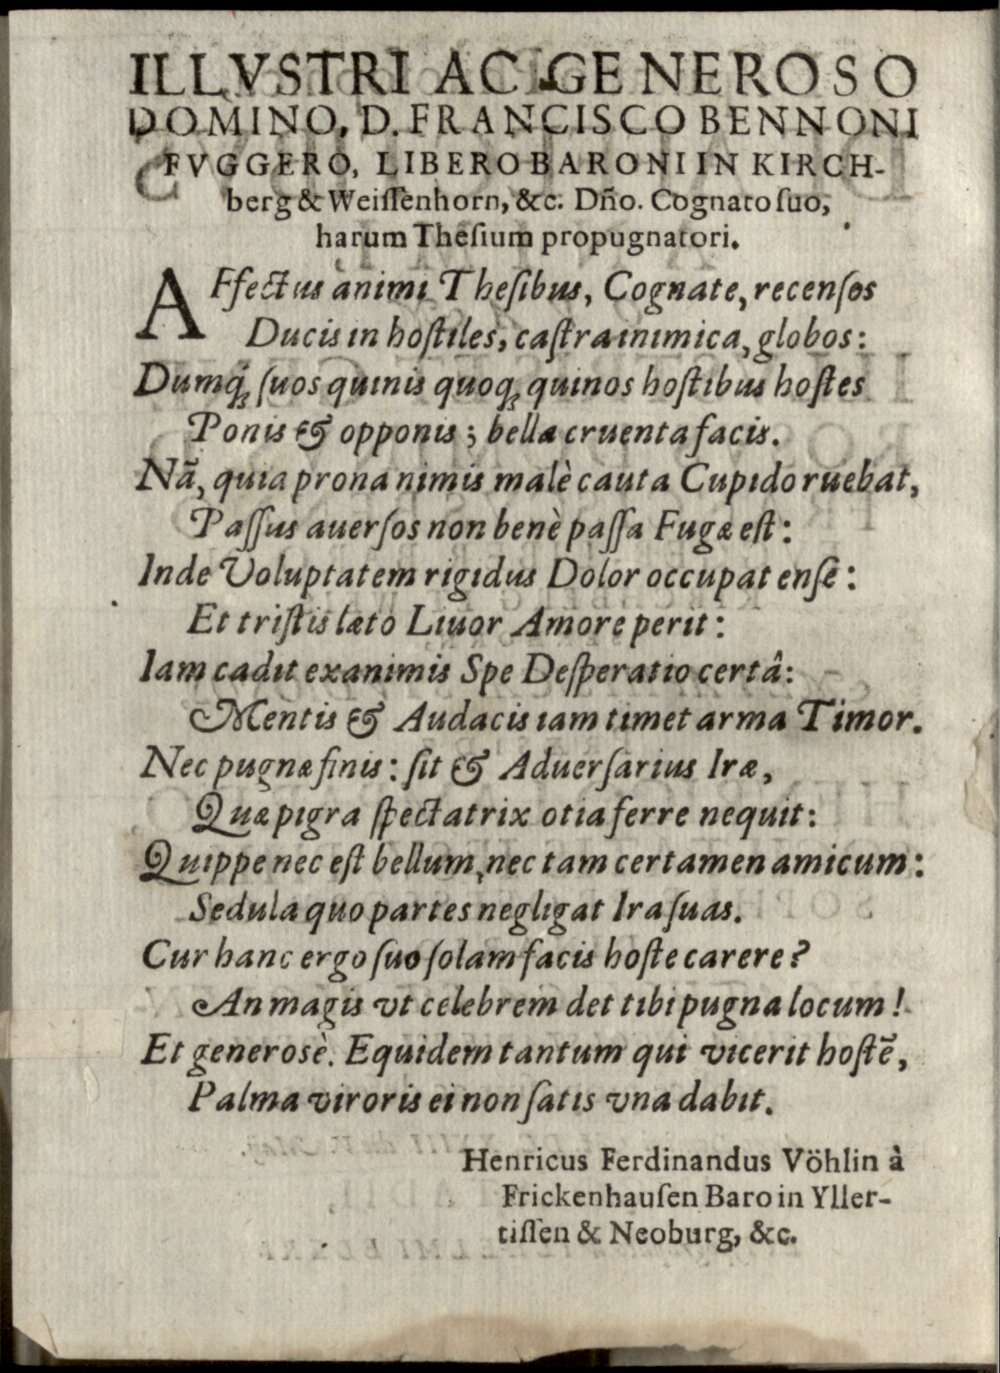 ILLVSTRI AC GENEROSO
DOMINO, D. FRANCISCO BENNONI
FVGGERO, LIBERO BARONI IN KIRCH-
berg & Weiſſenhorn, &c. Dño. Cognato ſuo,
harum Theſium propugnatori.
AFfectus animi Theſibus, Cognate, recenſos
Ducis in hoſtiles, caſtra inimica, globos:
Dumq́; ſuos quinis quoq; quinos hoſtibus hoſtes
Ponis & opponis; bella cruenta facis.
Nã, quia prona nimis malè cauta Cupido ruebat,
Paſſus auerſos non benè paſſa Fugæ eſt:
Inde Voluptatem rigidus Dolor occupat enſe:
Et triſtis læto Liuor Amore perit:
Iam cadit exanimis Spe Deſperatio certâ:
Mentis & Audacis iam timet arma Timor.
Nec pugnæ finis: ſit & Aduerſarius Iræ,
Quæ pigra ſpectatrix otia ferre nequit:
Quippe nec eſt bellum, nec tam certamen amicum:
Sedula quo partes negligat Ira ſuas.
Cur hanc ergo ſuo ſolam facis hoſte carere?
An magis vt celebrem det tibi pugna locum!
Et generosè. Equidem tantum qui vicerit hoſtẽ,
Palma viroris ei non ſatis vna dabit.
Henricus Ferdinandus Vöhlin à
Frickenhauſen Baro in Yller-
tiſſen & Neoburg, &c.